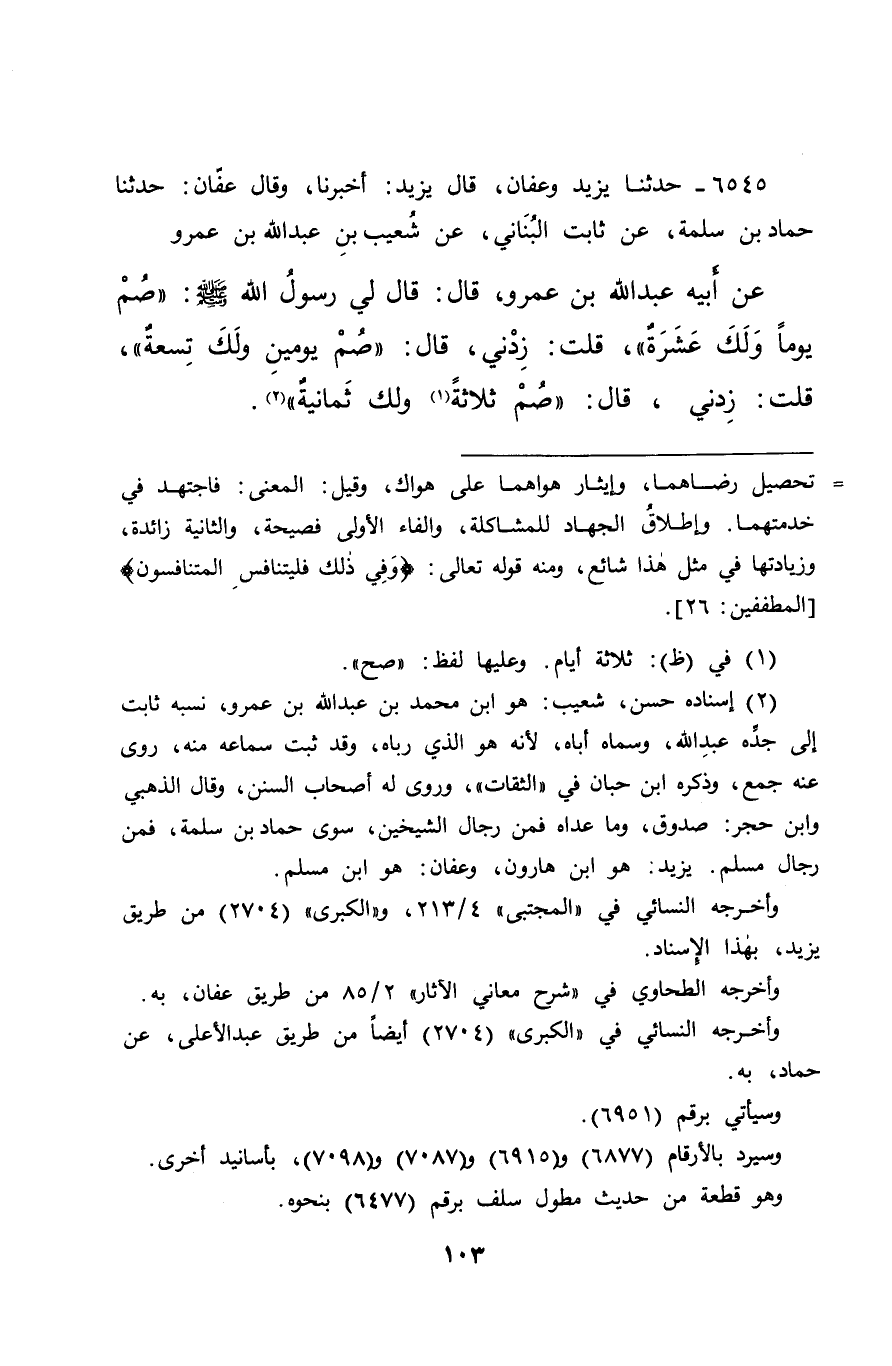 ٦٥٤٥ - حدثنا يزيد وعفان، قال يزيد: أخبرنا، وقال عفّان: حدثنا
حماد بن سلمة، عن ثابت البُنَاني، عن شُعيب بنِ عبدالله بن عمرو
عن أَبيه عبدالله بن عمرو، قال: قال لي رسولُ الله ﷺ: «صُمْ
يوماً وَلَكَ عَشَرَةٌ»، قلت: زِدْني، قال: «صُمْ يومينِ ولَكَ تِسعةٌ»،
قلت: زِدني ، قال: «صُمْ ثلاثةً(١) ولك ثَمانيةٌ»(٢).
= تحصيل رضاهما، وإيثار هواهما على هواك، وقيل: المعنى: فاجتهد في
خدمتهما. وإطلاقُ الجهاد للمشاكلة، والفاء الأولى فصيحة، والثانية زائدة،
وزيادتها في مثل هٰذا شائع، ومنه قوله تعالى: ﴿وَفِي ذٰلك فليتنافسِ المتنافسون﴾
[المطففين: ٢٦].
(١) في (ظ): ثلاثة أيام. وعليها لفظ: «صح».
(٢) إسناده حسن، شعيب: هو ابن محمد بن عبدالله بن عمرو، نسبه ثابت
إلى جدِّه عبدِالله، وسماه أباه، لأنه هو الذي رباه، وقد ثبت سماعه منه، روى
عنه جمع، وذكره ابن حبان في «الثقات»، وروى له أصحاب السنن، وقال الذهبي
وابن حجر: صدوق، وما عداه فمن رجال الشيخين، سوى حماد بن سلمة، فمن
رجال مسلم. يزيد: هو ابن هارون، وعفان: هو ابن مسلم.
وأخرجه النسائي في «المجتبى» ٢١٣/٤، و«الكبرى» (٢٧٠٤) من طريق
يزيد، بهٰذا الإِسناد.
وأخرجه الطحاوي في «شرح معاني الآثار» ٨٥/٢ من طريق عفان، به.
وأخرجه النسائي في «الكبرى» (٢٧٠٤) أيضاً من طريق عبدالأعلى، عن
حماد، به.
وسيأتي برقم (٦٩٥١).
وسيرد بالأرقام (٦٨٧٧) و(٦٩١٥) و(٧٠٨٧) و(٧٠٩٨)، بأسانيد أخرى.
وهو قطعة من حديث مطول سلف برقم (٦٤٧٧) بنحوه.
١٠٣